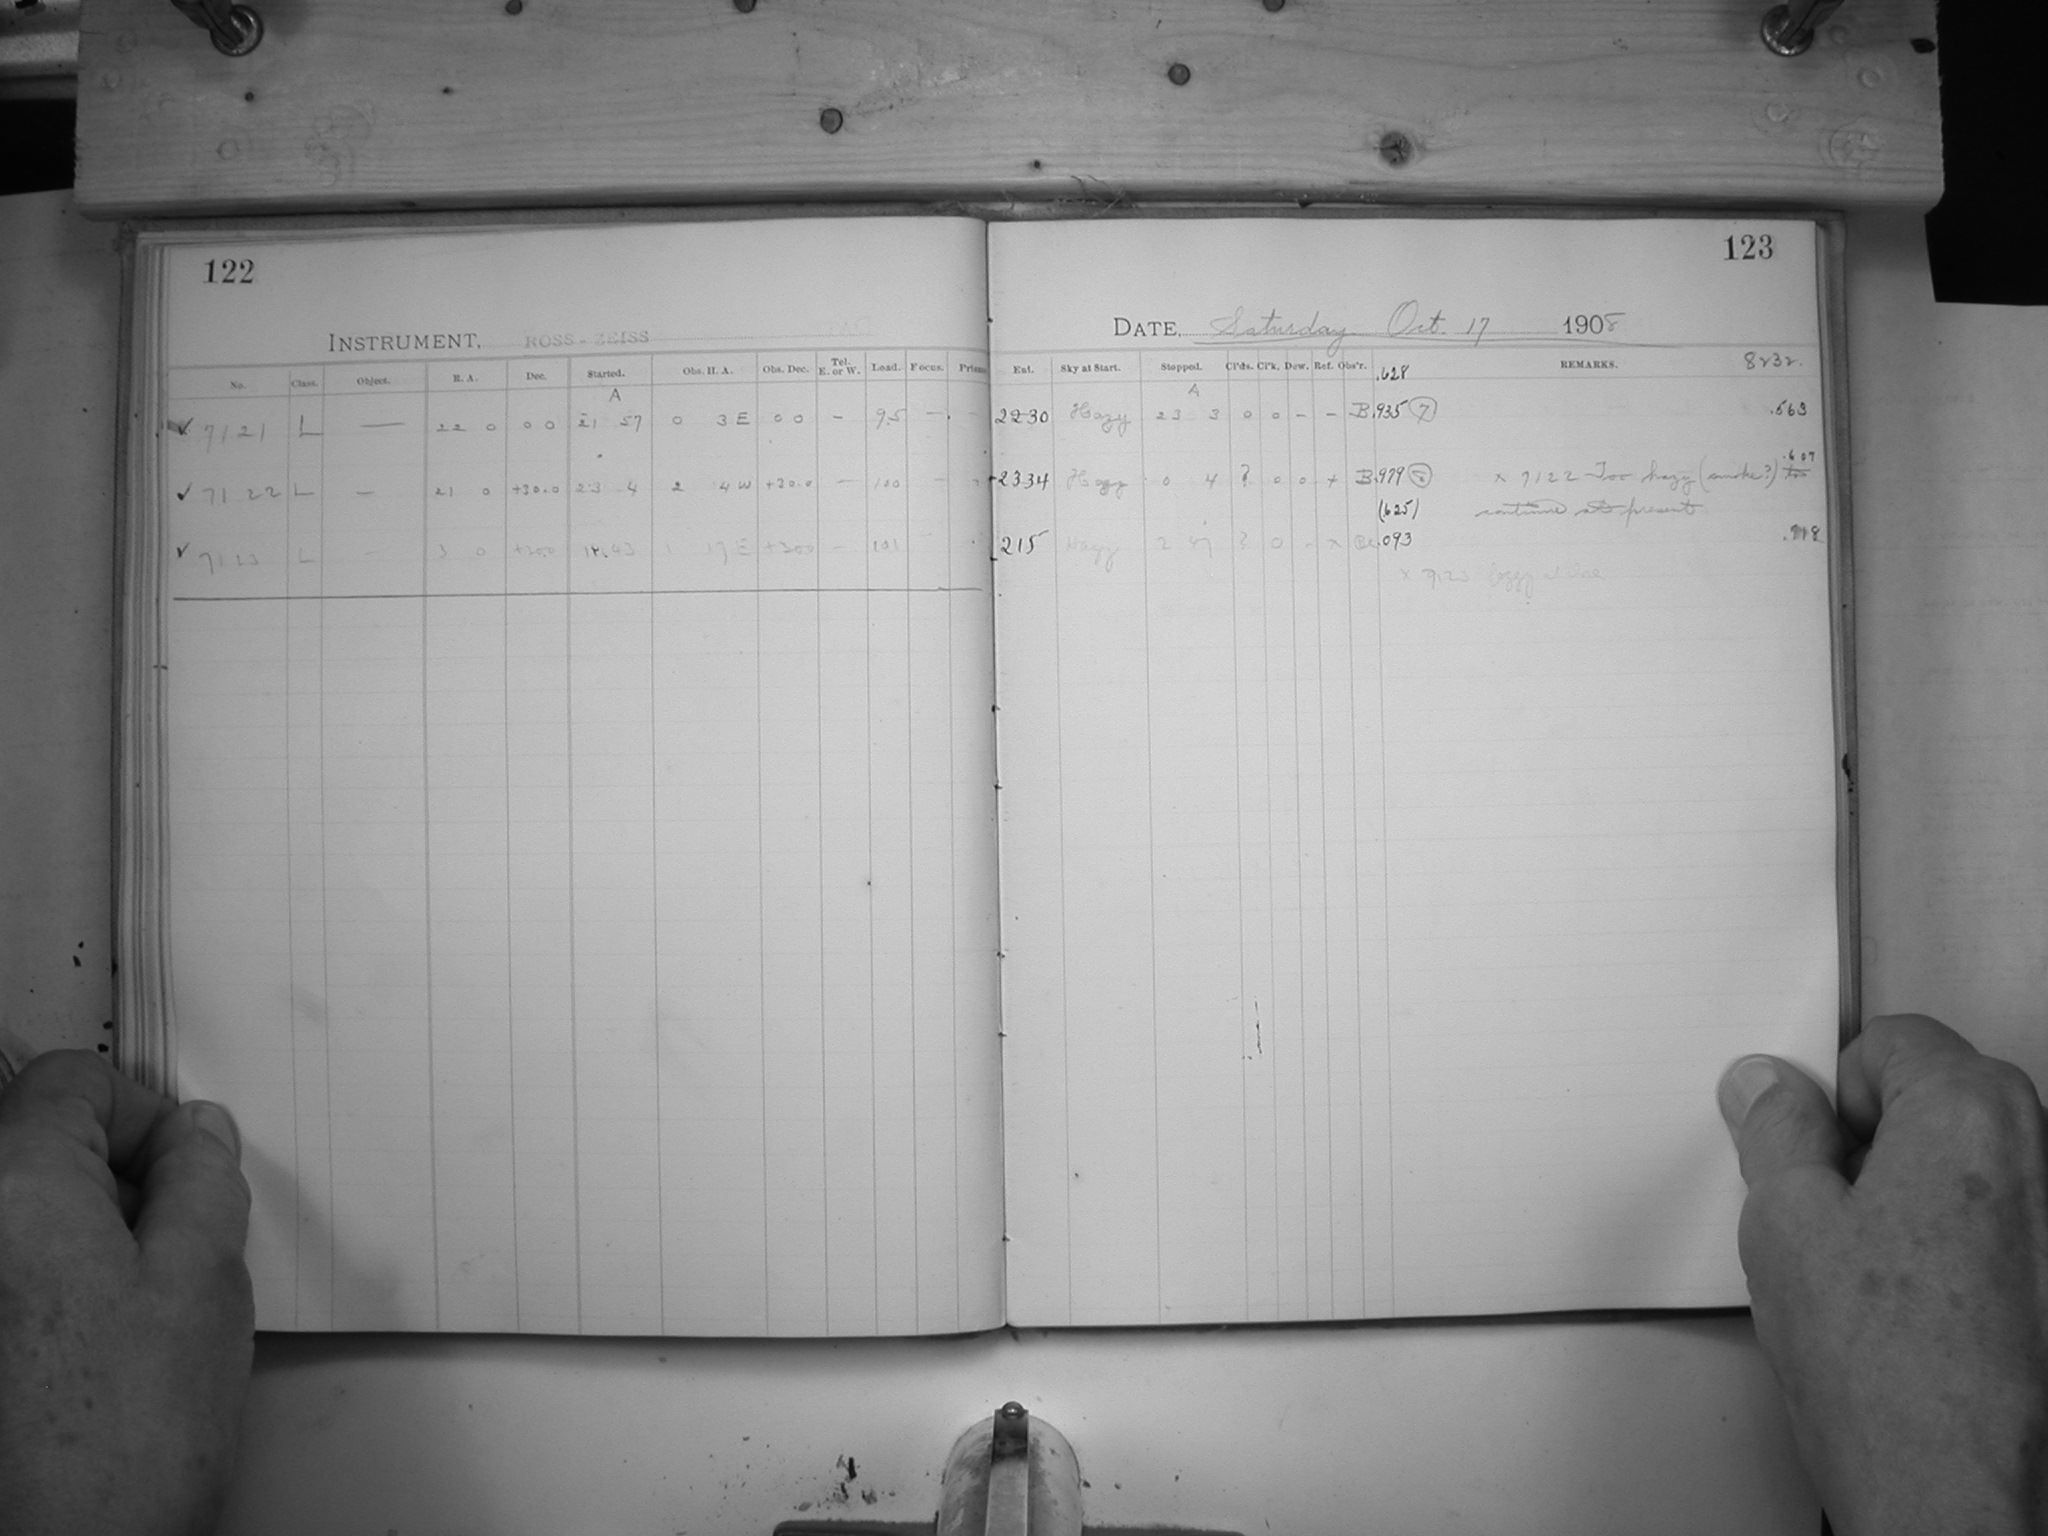 122
123
INSTRUMENT, ROSS-ZEISS
DATE, Saturday Oct. 17 1908
No. Class. Object. R. A. Dec. Started. Obs. H. A. Obs. Dec. Tel. E. or W. Load. Focus. Ext. Sky at Start. Stopped. Cl'ds. Cl'k. Dew. Ref. Obs'r. .628 REMARKS. 8232.
A A
✓ 7121 L — 22 0 0 0 21 57 0 3 E 0 0 – 95 – – 2230 Hazy 23 3 0 0 – – B .935 (7) .563
✓ 7122 L – 21 0 +30.0 23 4 2 4 W +30.0 – 100 – 2334 Hazy 0 4 ? 0 0 + B .979 x 7122 Too hazy (smoke?) to .607
(625) continue at present
✓ 7123 L – 3 0 1 17 E +30.0 – 101 215 Hazy 2 47 ? 0 – x .093
x 7123 foggy